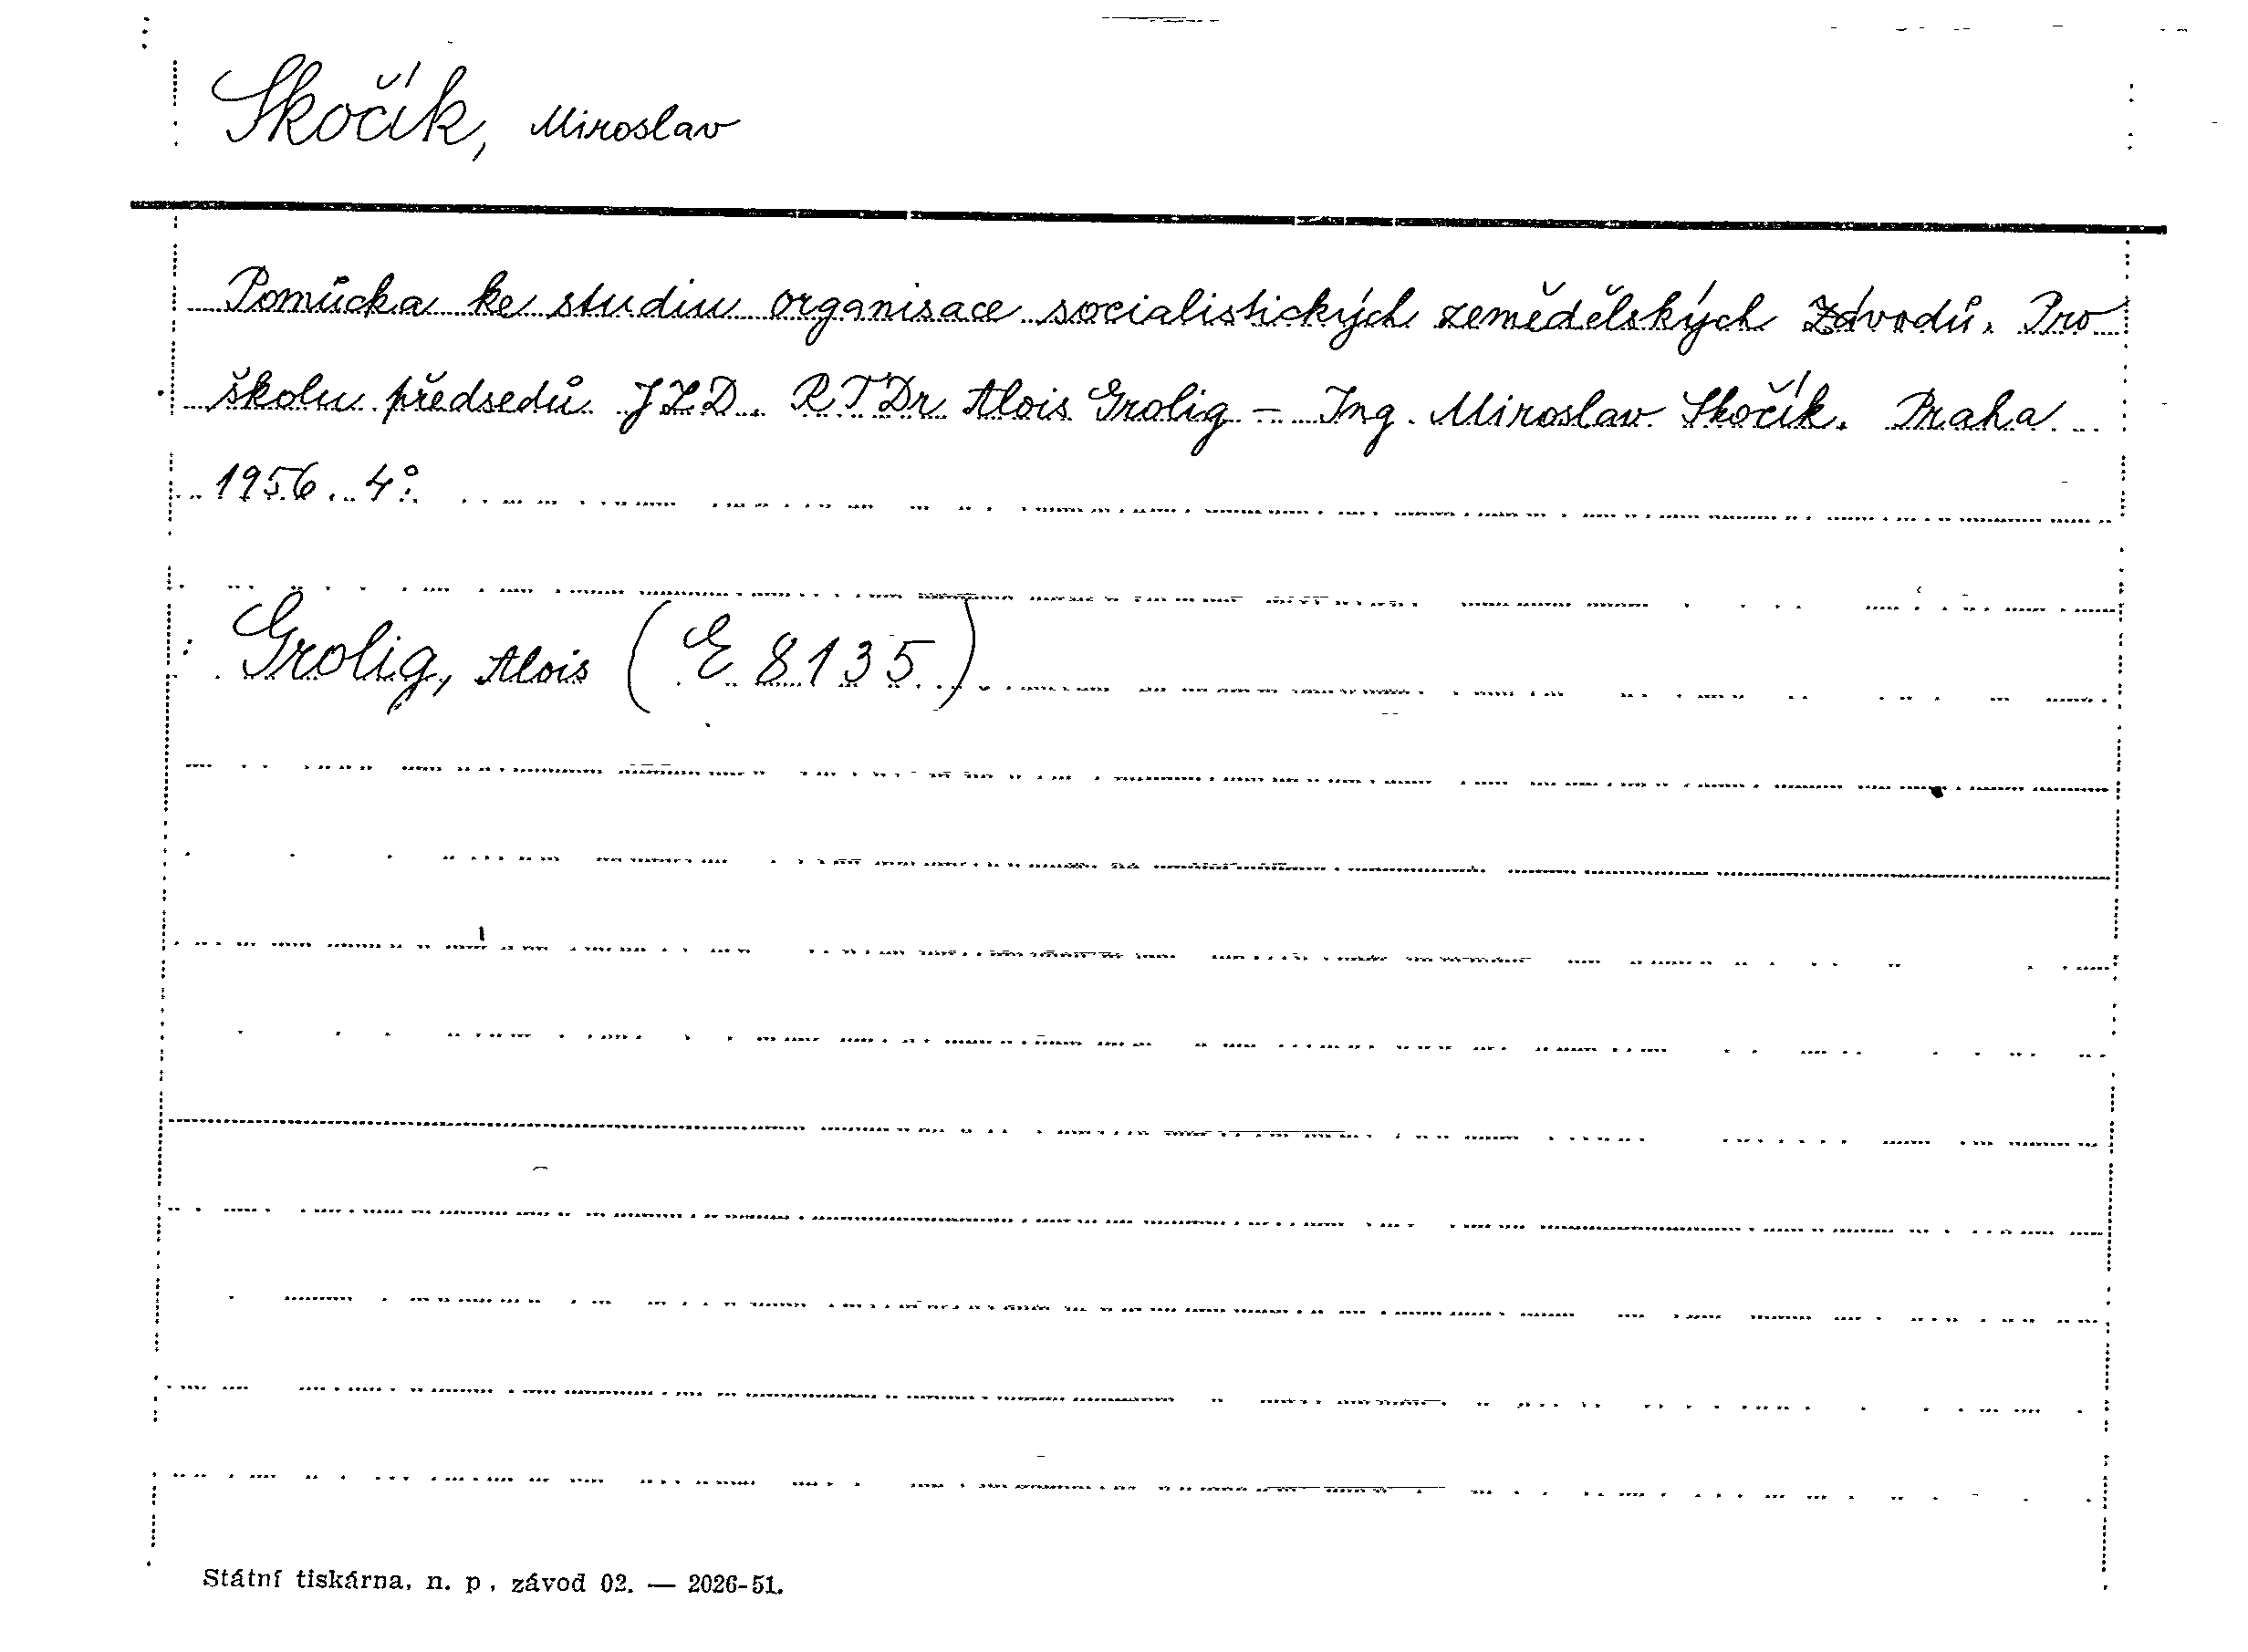 Skočík, Miroslav
Pomůcka ke studiu organisace socialistických zemědělských závodů. Pro
školu předsedů JZD. RTDr Alois Grolig – Ing. Miroslav Skočík. Praha
1956. 4°.
Grolig, Alois (E 8135)
Státní tiskárna, n. p., závod 02. — 2026-51.